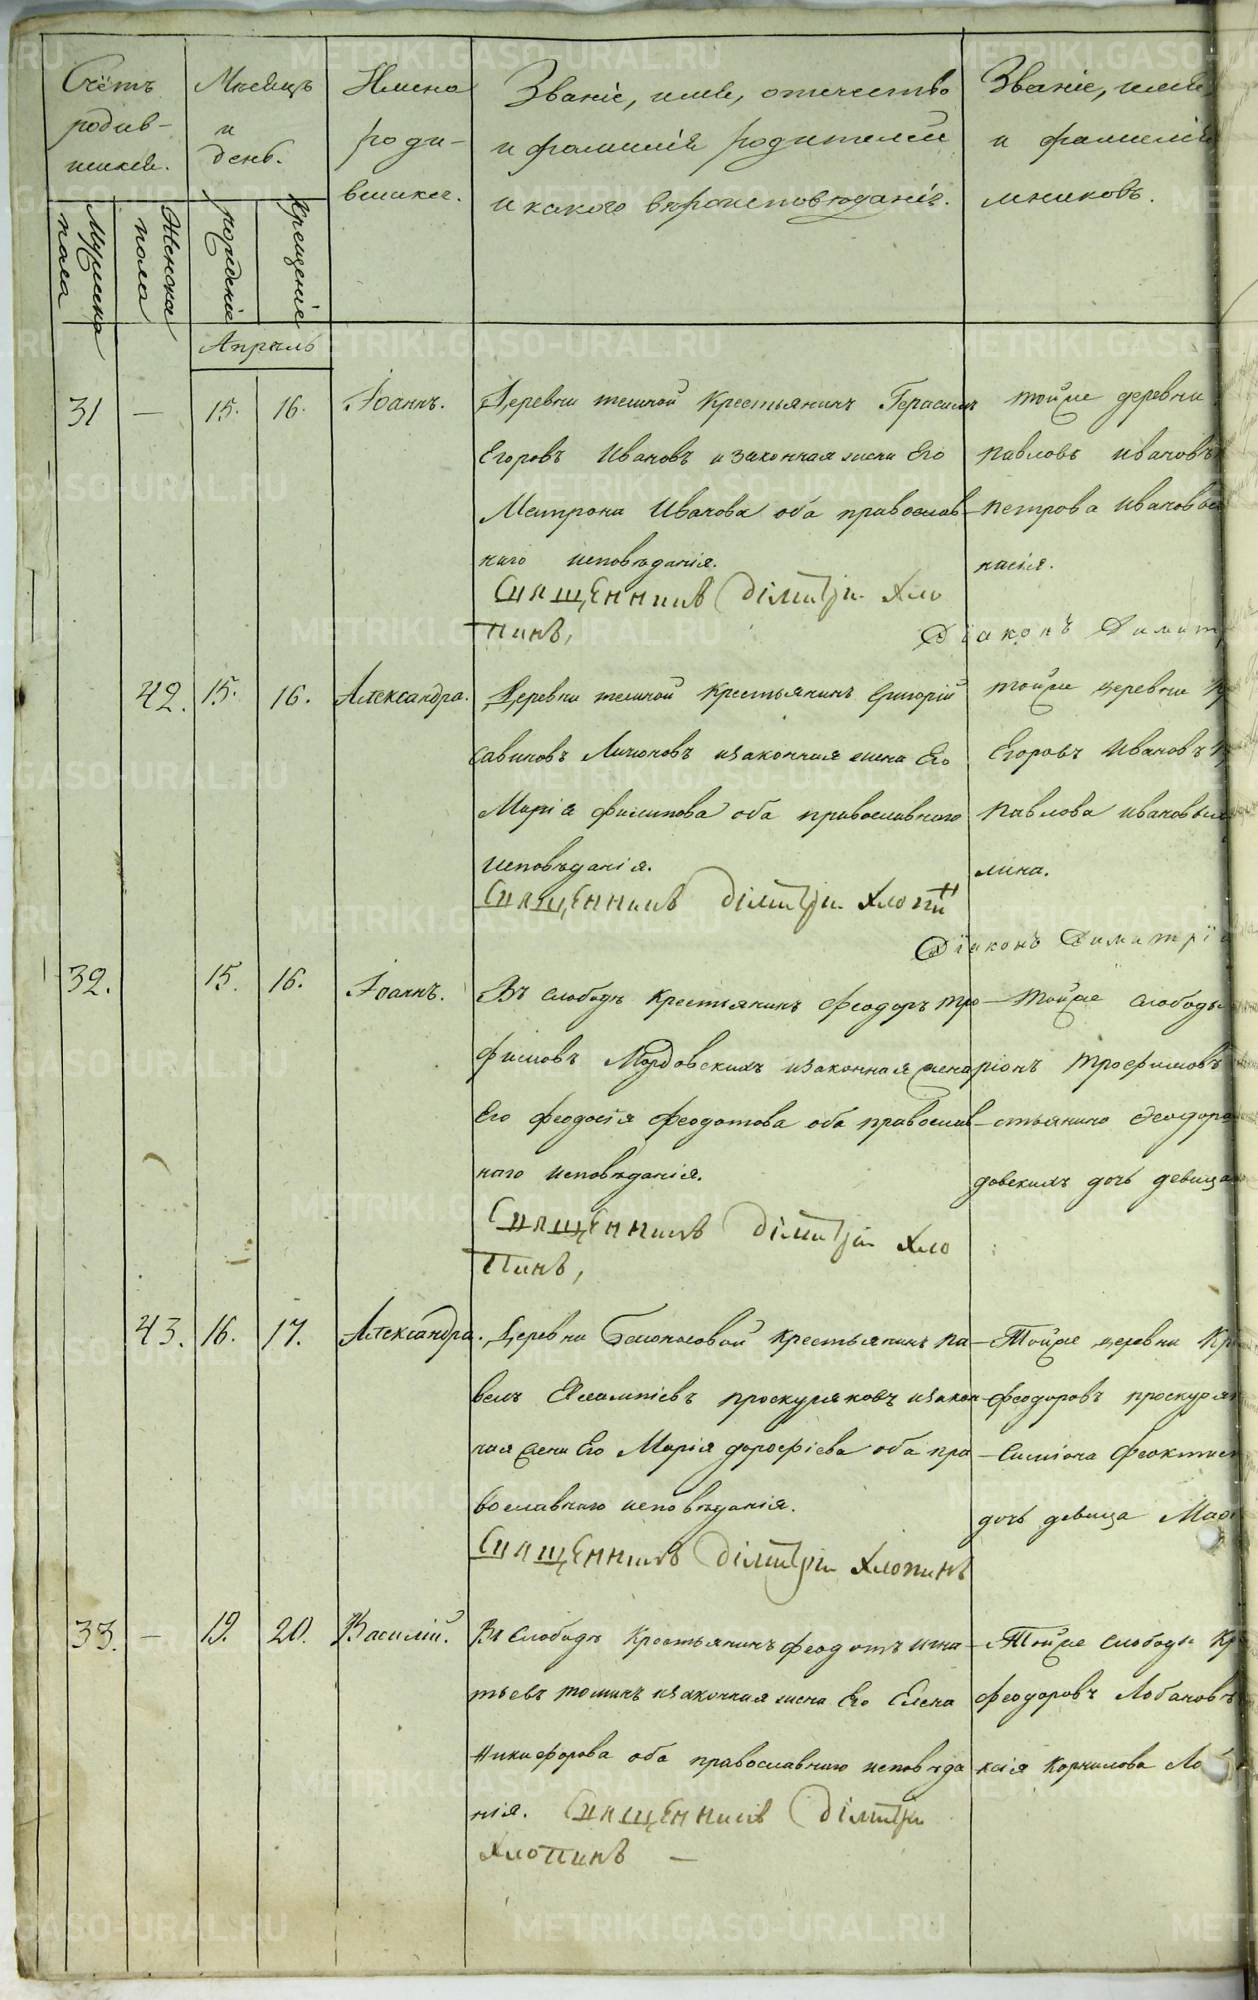 Счётъ
родив-
шихся.
Мѣсяцъ
и
день.
Имена
роди-
вшихся.
Званіе, имя, отечество
и фамилія родителей
и какого вѣроисповѣданія.
Званіе, имя,
и фамилія
мниковъ.
Мужска
пола
Женска
пола
рожденіе
крещеніе
Апрѣль
31 — 15. 16. Іоаннъ.
Деревни темной крестьянинъ Герасимъ
Егоровъ Ивановъ изаконная жена Его
Матрона Иванова оба православ-
наго исповѣданія.
Священникъ Дімитрій Хло
пинъ,
тойже деревни
Павловъ Ивановъ
Петрова Иванов
насія.
Діаконъ Димит
42. 15. 16. Александра.
Деревни темной крестьянинъ Григорій
Савиновъ изаконная жена Его
Марія Филипова оба православнаго
исповѣданія.
Священникъ Дімитрій Хлопи
тойже деревни Кр
Егоровъ Ивановъ
Павлова Иванов
лина.
Діаконъ Димитрій
32. 15. 16. Іоаннъ.
Въ слободѣ крестьянинъ Феодоръ Тро-
фимовъ Мордовскихъ изаконная жена
Его Феодосія Феодотова оба православ-
наго исповѣданія.
Священникъ Дімитрій Хло
пинъ,
Тойже слободы
ріонъ Трофимовъ
стьянина Феодора
довскихъ дочь девица
43. 16. 17. Александра.
Деревни Белоносовой крестьянинъ Па-
велъ Евлампіевъ Проскуряковъ изакон-
ная жена Его Марія Дорофіева оба пра-
вославнаго исповѣданія.
Священникъ Дімитрій Хлопинъ
Тойже деревни Кр
Феодоровъ Проскуряк
Симіона Феоктист
дочь девица Мар
33. — 19. 20. Василій.
Въ Слободѣ крестьянинъ Феодотъ Игна-
тьевъ Томинъ изаконная жена Его Елена
Никифорова оба православнаго исповѣда
нія. Священникъ Дімитрій
Хлопинъ —
Тойже слободы Кр
Феодоровъ Лобановъ
ксія Корнилова Ло